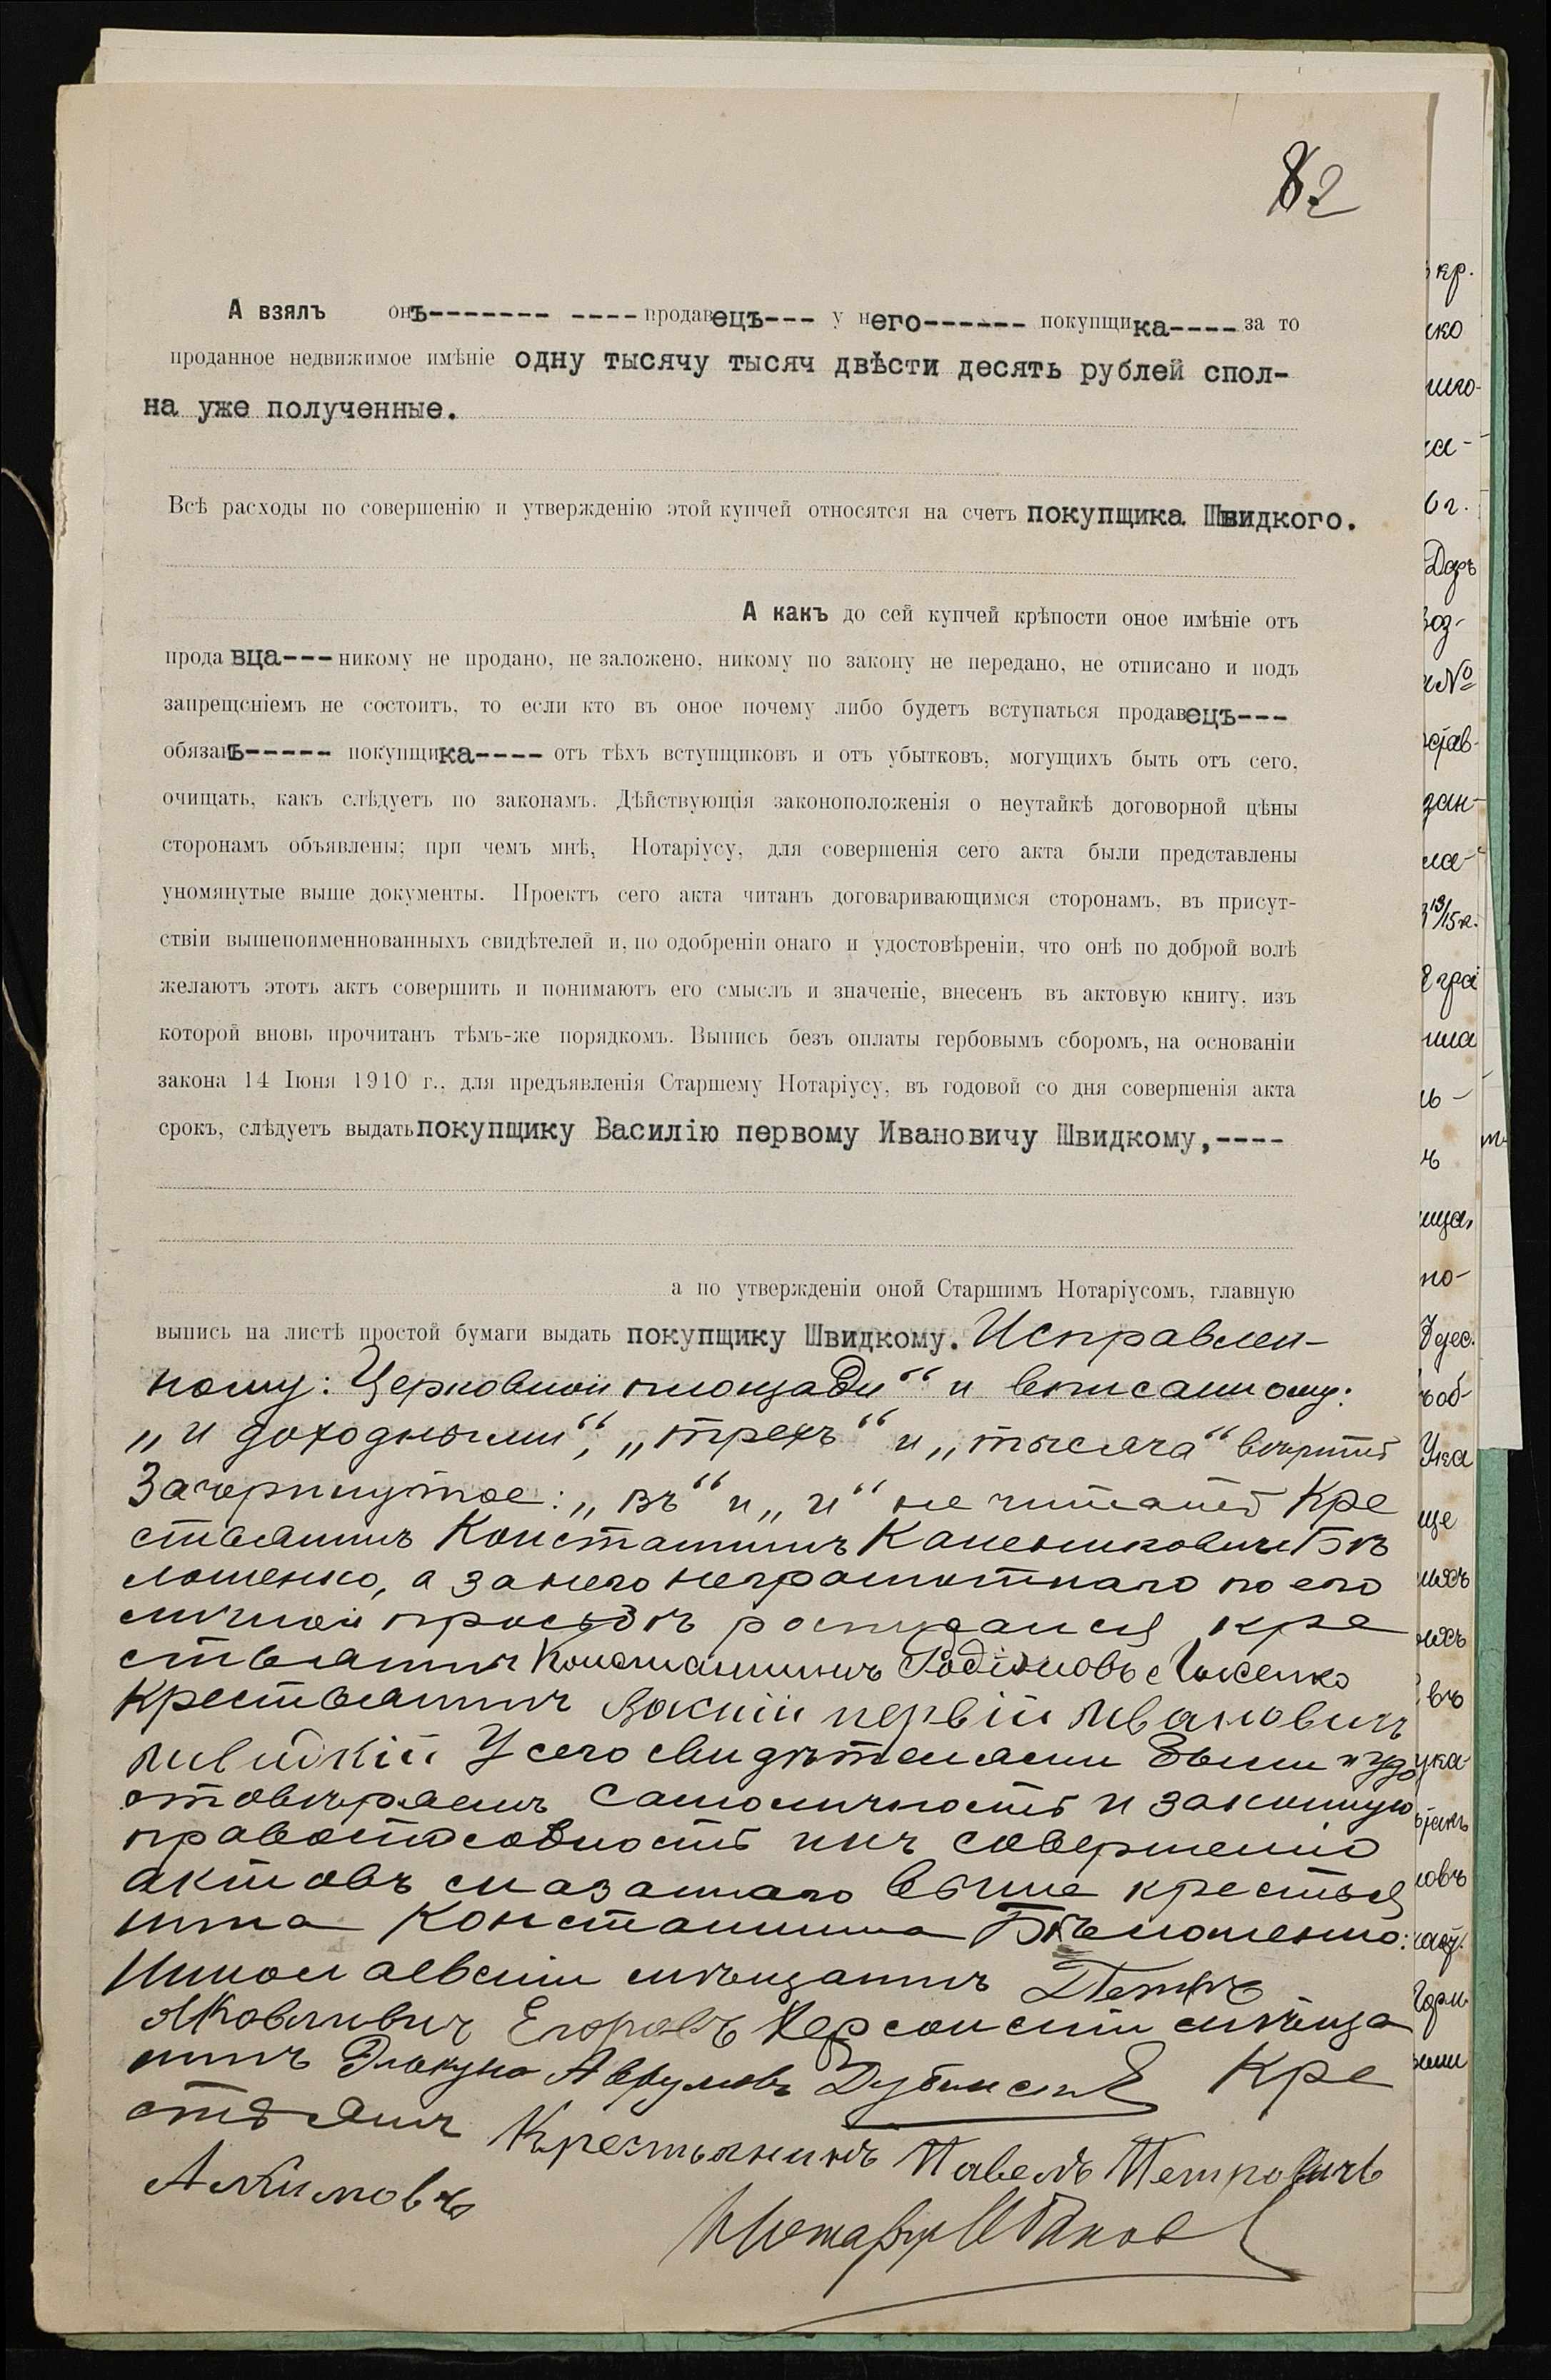 82
А взялъ онъ------- ----продавецъ--- у него------ покупщика----за то
проданное недвижимое имѣніе одну тысячу тысяч двѣсти десять рублей спол-
на уже полученные.
Всѣ расходы по совершенію и утвержденію этой купчей относятся на счетъ покупщика Швидкого.
А какъ до сей купчей крѣпости оное имѣніе отъ
продавца---никому не продано, не заложено, никому по закону не передано, не отписано и подъ
запрещеніемъ не состоитъ, то если кто въ оное почему либо будетъ вступаться продавецъ---
обязанъ----- покупщика---- отъ тѣхъ вступщиковъ и отъ убытковъ, могущихъ быть отъ сего,
очищать, какъ слѣдуетъ по законамъ. Дѣйствующія законоположенія о неутайкѣ договорной цѣны
сторонамъ объявлены; при чемъ мнѣ, Нотаріусу, для совершенія сего акта были представлены
уномянутые выше документы. Проектъ сего акта читанъ договаривающимся сторонамъ, въ присут-
ствіи вышепоименнованныхъ свидѣтелей и, по одобреніи онаго и удостовѣреніи, что онѣ по доброй волѣ
желаютъ этотъ актъ совершить и понимаютъ его смыслъ и значеніе, внесенъ въ актовую книгу, изъ
которой вновь прочитанъ тѣмъ-же порядкомъ. Выпись безъ оплаты гербовымъ сборомъ, на основаніи
закона 14 Іюня 1910 г., для предъявленія Старшему Нотаріусу, въ годовой со дня совершенія акта
срокъ, слѣдуетъ выдать покупщику Василію первому Ивановичу Швидкому,----
а по утвержденіи оной Старшимъ Нотаріусомъ, главную
выпись на листѣ простой бумаги выдать покупщику Швидкому. Исправлен-
ному: Церковной площади" и вписанному:
"и доходными", "трехъ" и "тысяча" вѣрить
Зачеркнутое: "въ" и "и" не читать Кре
стьянинъ Константинъ Бѣ
лошенко, а за него неграмотнаго по его
личной просьбѣ росписался кре
стьянинъ Константинъ Родіоновъ Лысенко
Крестьянинъ Васілій первій Ивановичъ
Швидкій У сего свидѣтелями были и удо
стовѣряемъ самоличность и законную
правоспособность къ совершенію
актовъ сказаннаго выше крестья
нина Константина Бѣлошенко:
Николаевскій мѣщанинъ Петръ
Яковлевичъ Егоровъ Херсонскій мѣща
нинъ Аврумовъ Дубинскій Кре
стьянин Крестьянинъ Павелъ Петровичъ
Акимовъ
Нотаріус